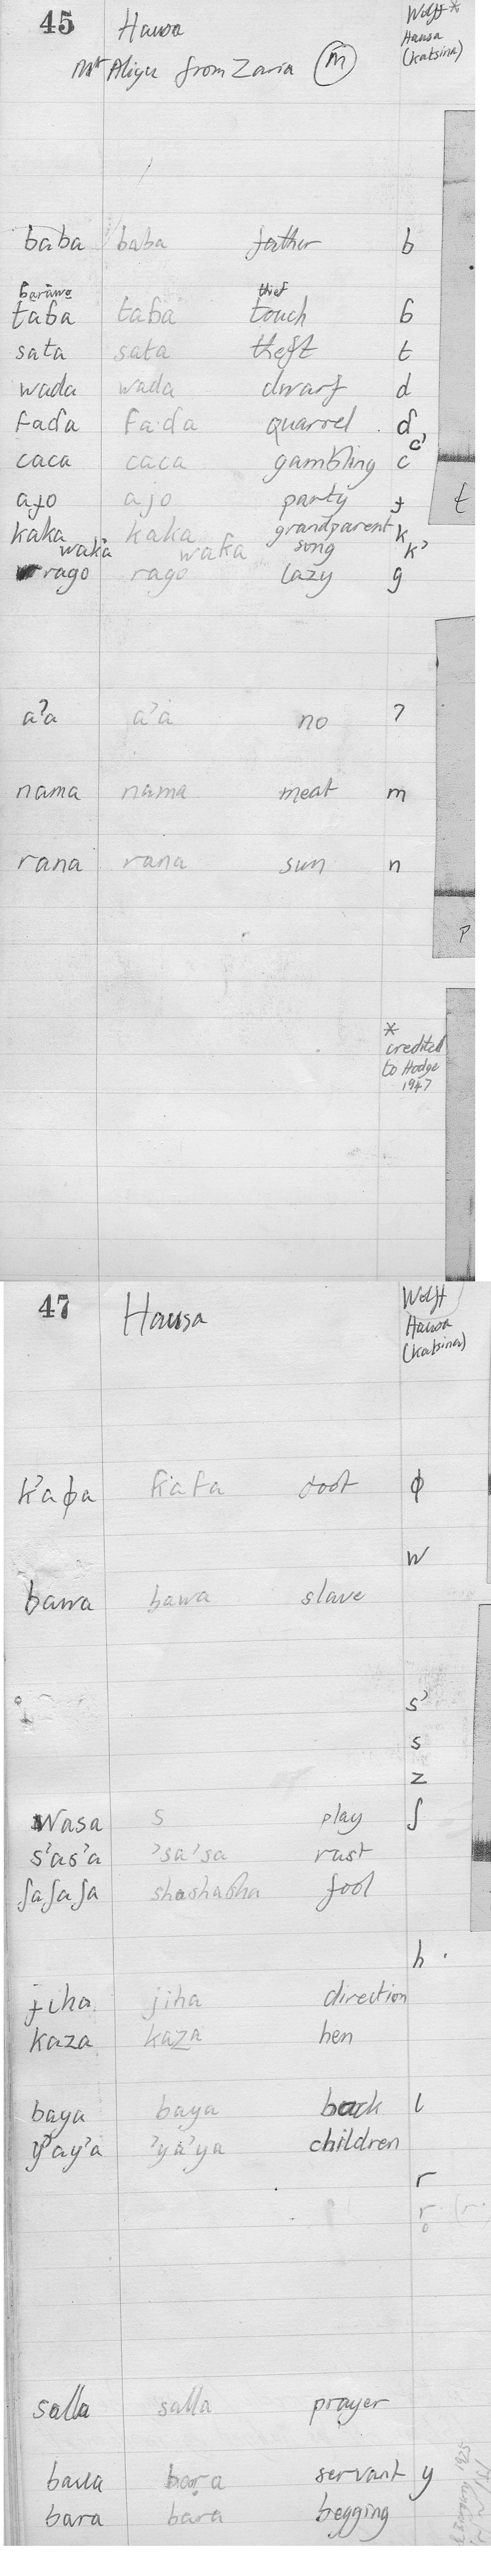 45 Hausa Wolff*
Hausa
(Katsina)
Mr Aliyu from Zaria (m)
baba baba father b
ɓarawo thief
taɓa taɓa touch ɓ
sata sata theft t
wada wada dwarf d
faɗa faɗa quarrel ɗ
c'
caca caca gambling c
aɟo ajo party ɟ
t
kaka kaka grandparent k
waƙa waƙa song k'
rago rago lazy g
aʔa a'a no ʔ
nama nama meat m
rana rana sun n
P
*
credited
to Hodge
1947
47 Hausa Wolff
Hausa
(Katsina)
k'aɸa ƙafa foot ɸ
w
bawa bawa slave
s'
s
z
wasa s play ʃ
s'as'a 'sa'sa rust
ʃaʃaʃa shashasha fool
h
ɟiha jiha direction
kaza kaza hen
baya baya back l
y'ay'a 'ya'ya children
r
r (r
salla salla prayer
bara servant y
bara bara begging
1925